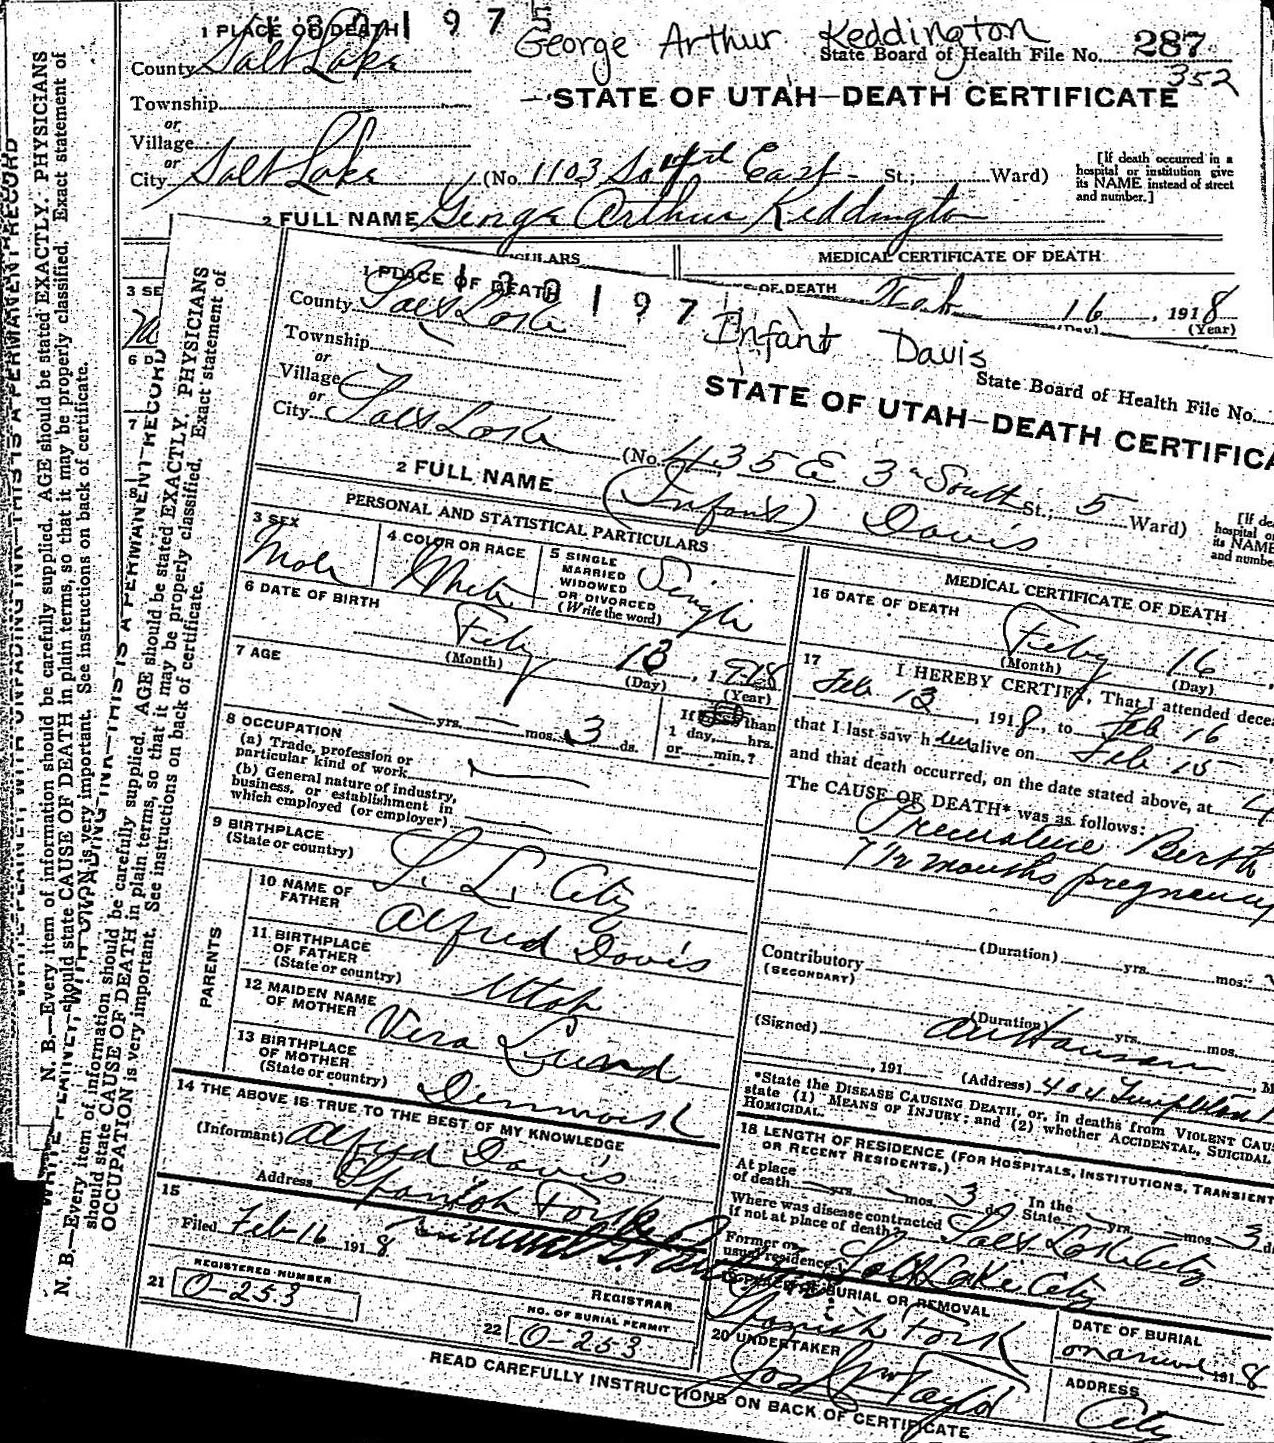 1 PLACE OF DEATH 1 9 7
George Arthur Keddington
State Board of Health File No. 287
352
County Salt Lake
STATE OF UTAH—DEATH CERTIFICATE
Township
or
Village
or
City Salt Lake (No. 1103 So. East St.; Ward)
[If death occurred in a
hospital or institution give
its NAME instead of street
and number.]
2 FULL NAME George Arthur Keddington
MEDICAL CERTIFICATE OF DEATH
OF DEATH Feb 16, 1918
(Day) (Year)
3 SE
6 D
7
8
WRITE PLAINLY, WITH UNFADING INK—THIS IS A PERMANENT RECORD
N. B.—Every item of information should be carefully supplied. AGE should be stated EXACTLY. PHYSICIANS
should state CAUSE OF DEATH in plain terms, so that it may be properly classified. Exact statement of
OCCUPATION is very important. See instructions on back of certificate.
WRITE PLAINLY, WITH UNFADING INK—THIS IS A PERMANENT RECORD
N. B.—Every item of information should be carefully supplied. AGE should be stated EXACTLY. PHYSICIANS
should state CAUSE OF DEATH in plain terms, so that it may be properly classified. Exact statement of
OCCUPATION is very important. See instructions on back of certificate.
1 PLACE OF DEATH 1 9 7
Infant Davis
State Board of Health File No.
County Salt Lake
STATE OF UTAH—DEATH CERTIFICA
Township
or
Village
or
City Salt Lake (No. 435 E 3rd South St.; 5 Ward)
[If de
hospital o
its NAME
and numbe
2 FULL NAME (Infant) Davis
PERSONAL AND STATISTICAL PARTICULARS
3 SEX Male
4 COLOR OR RACE White
5 SINGLE
MARRIED
WIDOWED
OR DIVORCED
(Write the word) Single
6 DATE OF BIRTH Feby 13, 1918
(Month) (Day) (Year)
7 AGE
yrs. mos. 3 ds.
If less than
1 day, hrs.
or min.?
8 OCCUPATION
(a) Trade, profession or
particular kind of work
(b) General nature of industry,
business, or establishment in
which employed (or employer)
9 BIRTHPLACE
(State or country) S. L. City
PARENTS
10 NAME OF
FATHER Alfred Davis
11 BIRTHPLACE
OF FATHER
(State or country) Utah
12 MAIDEN NAME
OF MOTHER Vera Lund
13 BIRTHPLACE
OF MOTHER
(State or country) Denmark
14 THE ABOVE IS TRUE TO THE BEST OF MY KNOWLEDGE
(Informant) Alfred Davis
Address Spanish Fork
15
Filed Feb 16 1918
REGISTRAR
21 REGISTERED NUMBER
0-253
22 NO. OF BURIAL PERMIT
0-253
MEDICAL CERTIFICATE OF DEATH
16 DATE OF DEATH Feby 16
(Month) (Day)
17 I HEREBY CERTIFY, That I attended dece
Feb 13, 1918, to Feb 16
that I last saw him alive on Feb 15
and that death occurred, on the date stated above, at 4
The CAUSE OF DEATH* was as follows:
Premature Berth
7 1/2 months pregnancy
(Duration) yrs. mos.
Contributory
(SECONDARY)
(Duration) yrs. mos.
(Signed)
, 191 (Address) 404 Templeton
*State the DISEASE CAUSING DEATH, or, in deaths from VIOLENT CAU
state (1) MEANS OF INJURY; and (2) whether ACCIDENTAL, SUICIDAL
HOMICIDAL.
18 LENGTH OF RESIDENCE (FOR HOSPITALS, INSTITUTIONS, TRANSIENT
OR RECENT RESIDENTS.)
At place
of death yrs. mos. 3 ds. In the
State yrs. mos. 3 d
Where was disease contracted
if not at place of death? Salt Lake City
Former or
usual residence Salt Lake City
BURIAL OR REMOVAL
Spanish Fork
DATE OF BURIAL
on arrival, 1918
20 UNDERTAKER
Jos Wm Taylor
ADDRESS
City
READ CAREFULLY INSTRUCTIONS ON BACK OF CERTIFICATE